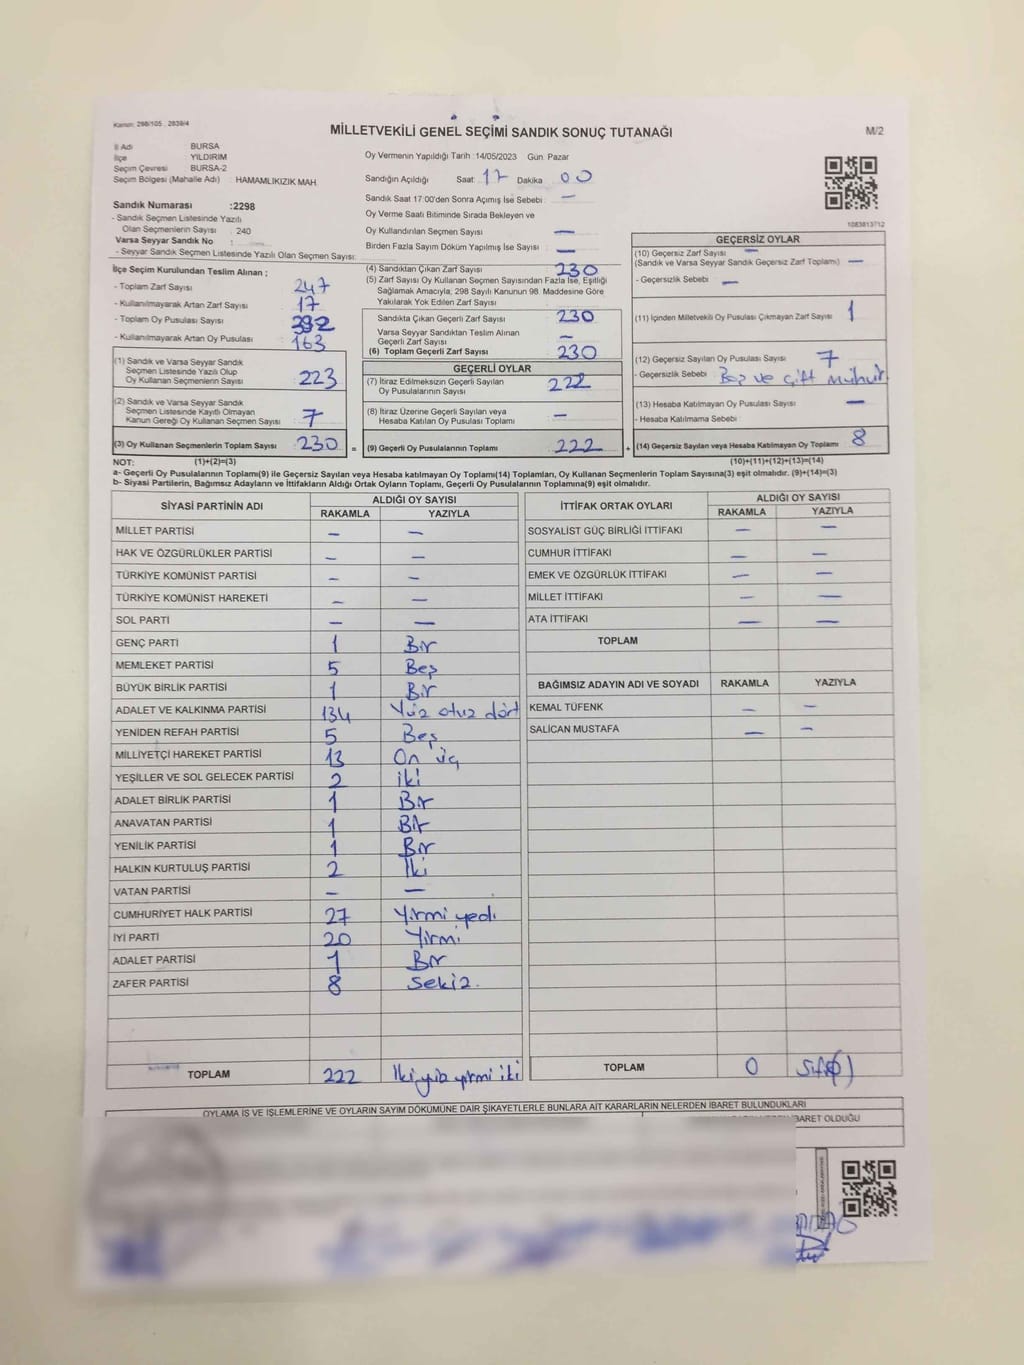 Kanun: 298/105 , 2839/4
MİLLETVEKİLİ GENEL SEÇİMİ SANDIK SONUÇ TUTANAĞI
M/2
İl Adı BURSA
İlçe YILDIRIM
Seçim Çevresi BURSA-2
Seçim Bölgesi (Mahalle Adı) : HAMAMLIKIZIK MAH.
Oy Vermenin Yapıldığı Tarih :14/05/2023 Gün: Pazar
Sandığın Açıldığı Saat: 17 Dakika 00
Sandık Saat 17:00'den Sonra Açımış İse Sebebi : —
Oy Verme Saati Bitiminde Sırada Bekleyen ve
Oy Kullandırılan Seçmen Sayısı —
Birden Fazla Sayım Döküm Yapılmış İse Sayısı : —
1083813712
Sandık Numarası :2298
- Sandık Seçmen Listesinde Yazılı
Olan Seçmenlerin Sayısı : 240
Varsa Seyyar Sandık No :
- Seyyar Sandık Seçmen Listesinde Yazılı Olan Seçmen Sayısı:
İlçe Seçim Kurulundan Teslim Alınan ;
- Toplam Zarf Sayısı 247
- Kullanılmayarak Artan Zarf Sayısı 17
- Toplam Oy Pusulası Sayısı 392
- Kullanılmayarak Artan Oy Pusulası 163
(1) Sandık ve Varsa Seyyar Sandık
Seçmen Listesinde Yazılı Olup
Oy Kullanan Seçmenlerin Sayısı 223
(2) Sandık ve Varsa Seyyar Sandık
Seçmen Listesinde Kayıtlı Olmayan
Kanun Gereği Oy Kullanan Seçmen Sayısı 7
(3) Oy Kullanan Seçmenlerin Toplam Sayısı 230 =
(4) Sandıktan Çıkan Zarf Sayısı 230
(5) Zarf Sayısı Oy Kullanan Seçmen Sayısından Fazla İse, Eşitliği
Sağlamak Amacıyla; 298 Sayılı Kanunun 98. Maddesine Göre
Yakılarak Yok Edilen Zarf Sayısı
Sandıkta Çıkan Geçerli Zarf Sayısı 230
Varsa Seyyar Sandıktan Teslim Alınan
Geçerli Zarf Sayısı —
(6) Toplam Geçerli Zarf Sayısı 230
GEÇERLİ OYLAR
(7) İtiraz Edilmeksizin Geçerli Sayılan
Oy Pusulalarının Sayısı 222
(8) İtiraz Üzerine Geçerli Sayılan veya
Hesaba Katılan Oy Pusulası Toplamı —
(9) Geçerli Oy Pusulalarının Toplamı 222 +
GEÇERSİZ OYLAR
(10) Geçersiz Zarf Sayısı —
(Sandık ve Varsa Seyyar Sandık Geçersiz Zarf Toplamı) —
- Geçersizlik Sebebi : —
(11) İçinden Milletvekili Oy Pusulası Çıkmayan Zarf Sayısı 1
(12) Geçersiz Sayılan Oy Pusulası Sayısı 7
- Geçersizlik Sebebi Boş ve çift mühür
(13) Hesaba Katılmayan Oy Pusulası Sayısı —
- Hesaba Katılmama Sebebi :
(14) Geçersiz Sayılan veya Hesaba Katılmayan Oy Toplamı 8
NOT: (1)+(2)=(3) (10)+(11)+(12)+(13)=(14)
a- Geçerli Oy Pusulalarının Toplamı(9) ile Geçersiz Sayılan veya Hesaba katılmayan Oy Toplamı(14) Toplamları, Oy Kullanan Seçmenlerin Toplam Sayısına(3) eşit olmalıdır. (9)+(14)=(3)
b- Siyasi Partilerin, Bağımsız Adayların ve İttifakların Aldığı Ortak Oyların Toplamı, Geçerli Oy Pusulalarının Toplamına(9) eşit olmalıdır.
SİYASİ PARTİNİN ADI ALDIĞI OY SAYISI
RAKAMLA YAZIYLA
MİLLET PARTİSİ — —
HAK VE ÖZGÜRLÜKLER PARTİSİ — —
TÜRKİYE KOMÜNİST PARTİSİ — —
TÜRKİYE KOMÜNİST HAREKETİ — —
SOL PARTİ — —
GENÇ PARTİ 1 Bir
MEMLEKET PARTİSİ 5 Beş
BÜYÜK BİRLİK PARTİSİ 1 Bir
ADALET VE KALKINMA PARTİSİ 134 Yüz otuz dört
YENİDEN REFAH PARTİSİ 5 Beş
MİLLİYETÇİ HAREKET PARTİSİ 13 On üç
YEŞİLLER VE SOL GELECEK PARTİSİ 2 iki
ADALET BİRLİK PARTİSİ 1 Bir
ANAVATAN PARTİSİ 1 Bir
YENİLİK PARTİSİ 1 Bir
HALKIN KURTULUŞ PARTİSİ 2 İki
VATAN PARTİSİ — —
CUMHURİYET HALK PARTİSİ 27 Yirmi yedi
İYİ PARTİ 20 Yirmi
ADALET PARTİSİ 1 Bir
ZAFER PARTİSİ 8 Sekiz.
TOPLAM 222 İkiyüz yirmi iki
İTTİFAK ORTAK OYLARI ALDIĞI OY SAYISI
RAKAMLA YAZIYLA
SOSYALİST GÜÇ BİRLİĞİ İTTİFAKI — —
CUMHUR İTTİFAKI — —
EMEK VE ÖZGÜRLÜK İTTİFAKI — —
MİLLET İTTİFAKI — —
ATA İTTİFAKI — —
TOPLAM
BAĞIMSIZ ADAYIN ADI VE SOYADI RAKAMLA YAZIYLA
KEMAL TÜFENK — —
SALİCAN MUSTAFA — —
TOPLAM 0
OYLAMA İŞ VE İŞLEMLERİNE VE OYLARIN SAYIM DÖKÜMÜNE DAİR ŞİKAYETLERLE BUNLARA AİT KARARLARIN NELERDEN İBARET BULUNDUKLARI
İBARET OLDUĞU